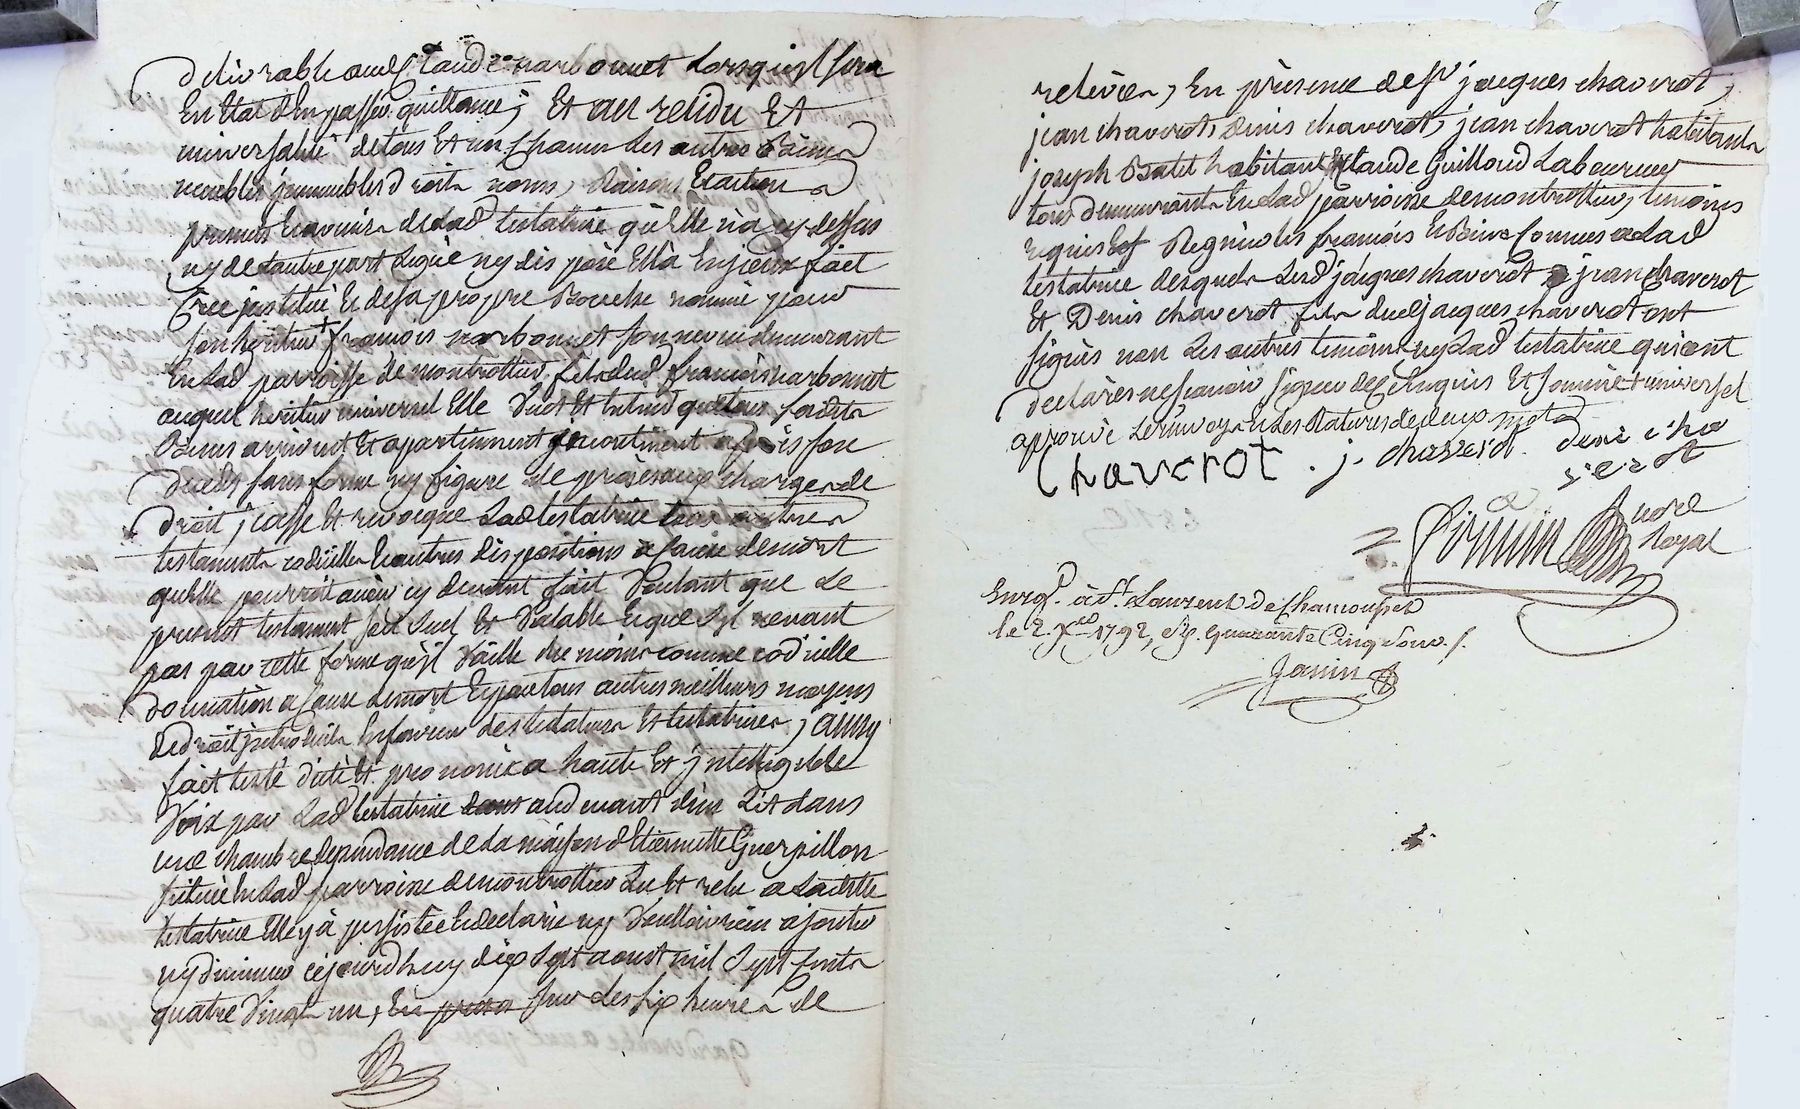 delivrable aud. Claude narbonnet Lorsquil sera
En Etat d'En passer quittance; Et au residu Et
universalité de tous Et un Chacun Ses autres Biens
meubles immeubles droits noms, Raisons Et actions
presents Et avenirs de lad. testatrice qu'elle n'a cy dessus
ny de dautre part Légué ny dis posé Ell'a En jceux fait
Créé jnstitué Et de sa propre Bouche nommé pour
son héritier + francois narbonnet son neveu demeurant
En lad parroisse de montrottier, fils dud francois narbonnet
auquel heritier universel Elle Veut Et Entend que tous sesdits
Biens arrivent Et apartiennent Et
Déceds sans forme ny figure de procès aux charges de
droit, casse Et revocque Lad testatrice tous autres
testaments codicilles Et autres dispositions a Cause de mort
quelle pourroit avoir cy devant fait Voulant que Le
present testament soit Seul Et Valable Et que S'jl ne vaut
pas par cette forme qu'jl Vaille du moins comme codicille
donnation a Cause de mort Et par tous autres meilleurs moyens
de droit jntroduits En faveur des testateurs Et testatrices, ainsy
fait testé dicté Et prononcé a haute Et jntelligible
Voix par Lad testatrice au devant d'un Lit dans
une chambre dependance de la maison d'Etiennette Guerpillon
scituée En lad parroisse de montrottier Lu Et relu a Ladite
testatrice Elle y à persistée Et declaré ny Vouloir rien ajouter
ny diminuer cejourd'huy dix Sept aoust mil Sept Cents
quatre Vingt un, En sur Les six heures de
relevées, En présence de Sr jacques chaverot,
jean chaverot, Denis chaverot, jean chaverot habitants
joseph Batit habitant Et Claude Guilloud Laboureur
tous demeurants En Lad parroisse de montrottier, temoins
requis Et Regnicoles francois Et Bien Connus a Lad
testatrice desquels Led jacques chaverot jean chaverot
Et Denis chaverot fils dud. jacques chaverot ont
signés non Les autres temoins ny Lad testatrice qui ont
declarés ne scavoir signer de ce Enquis Et sommés + universel
approuvé Le renvoy Et Les Ratures de deux mots
Chaverot . j. chaverot. deni cha
verot
Firmin
nore
Royal
Enregt. à St. Laurent de Chamousset
le 2. Xbre 1792, R. quarante Cinq sous. /.
Janin